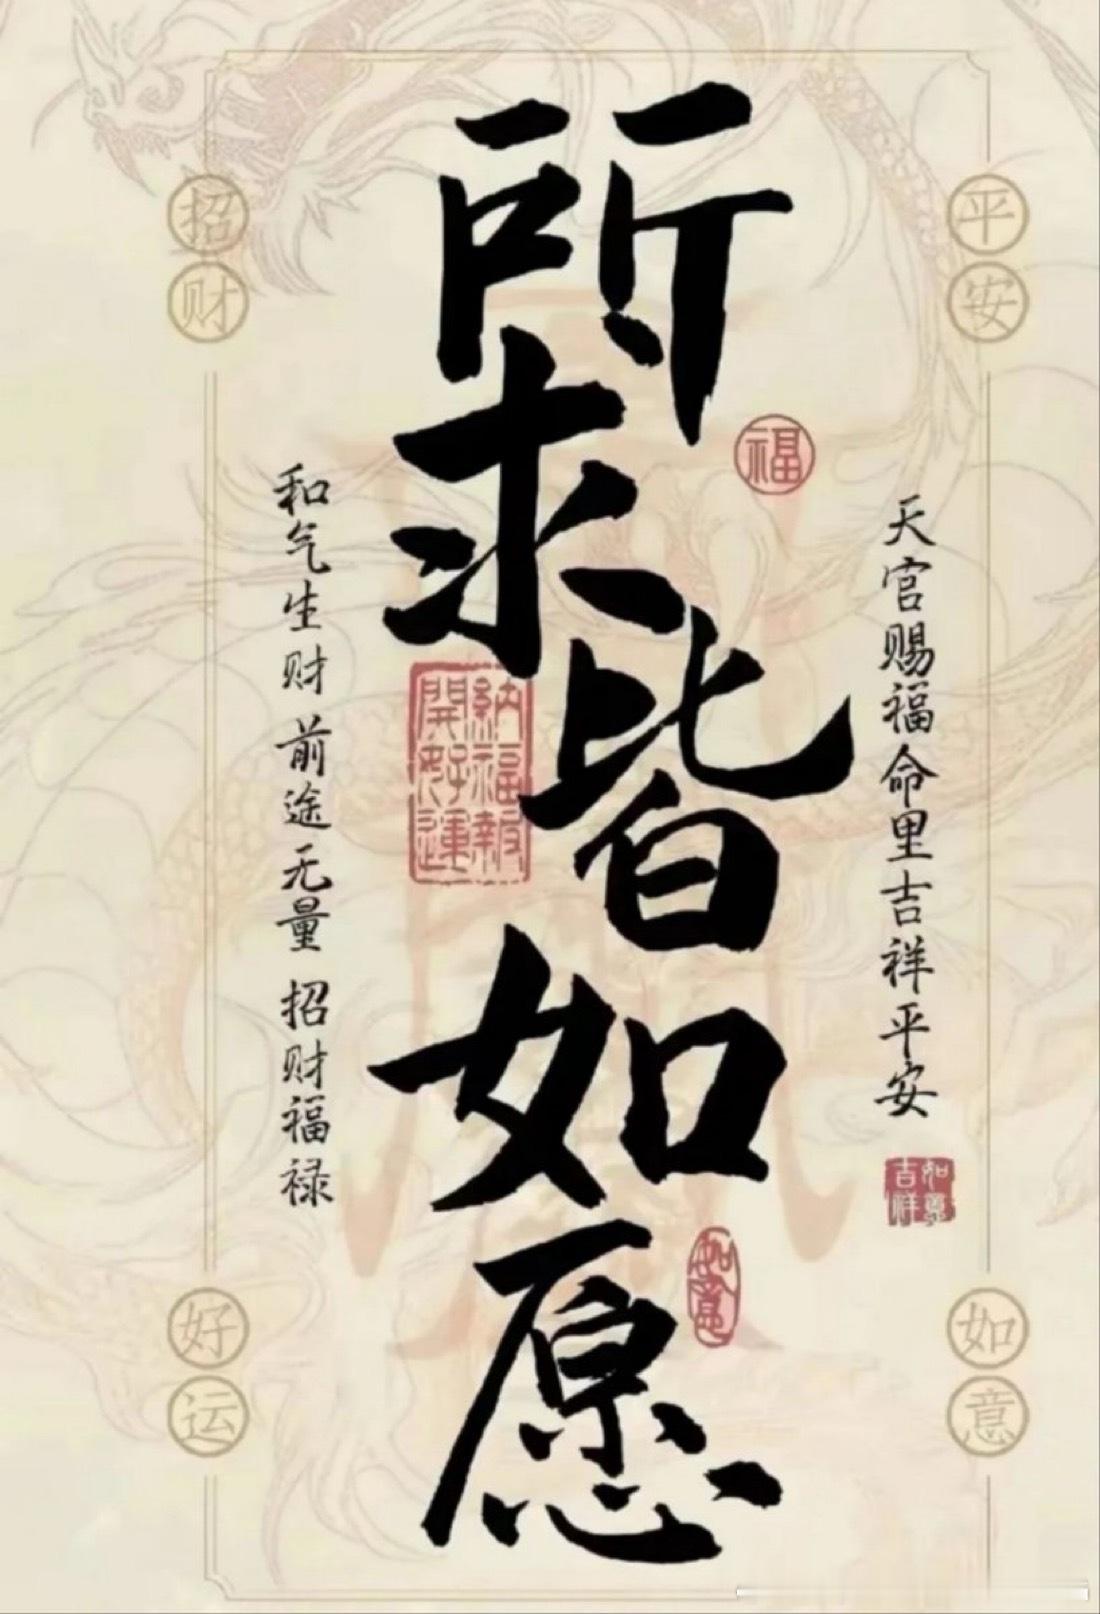 所求皆如愿
天官赐福命里吉祥平安
和气生财 前途无量 招财福禄
平安
招财
如意
好运
福
納福報
開好運
如意
吉祥
如意